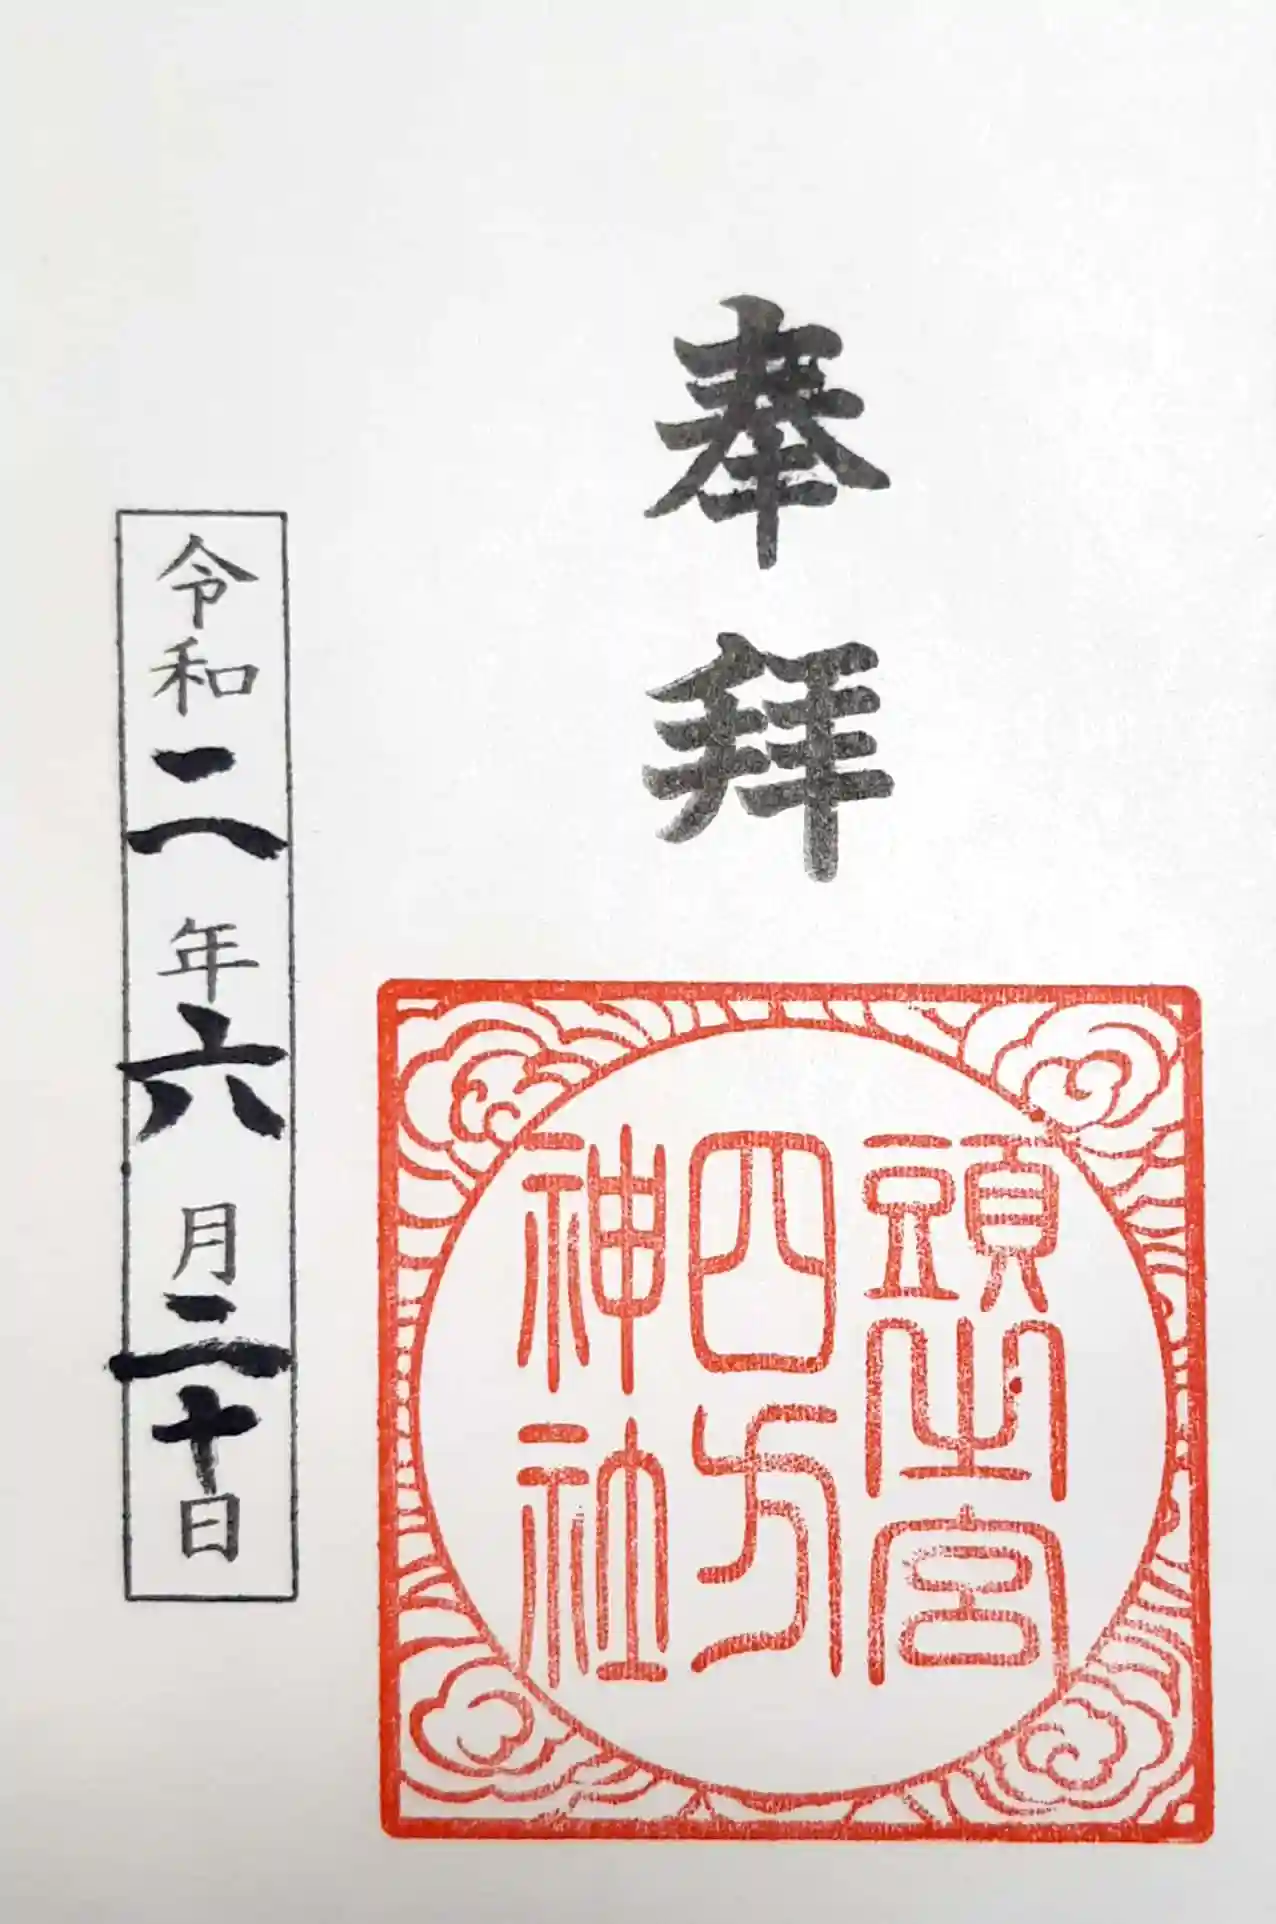 奉拜
頭之宮
四方
神社
令和二年六月二十日